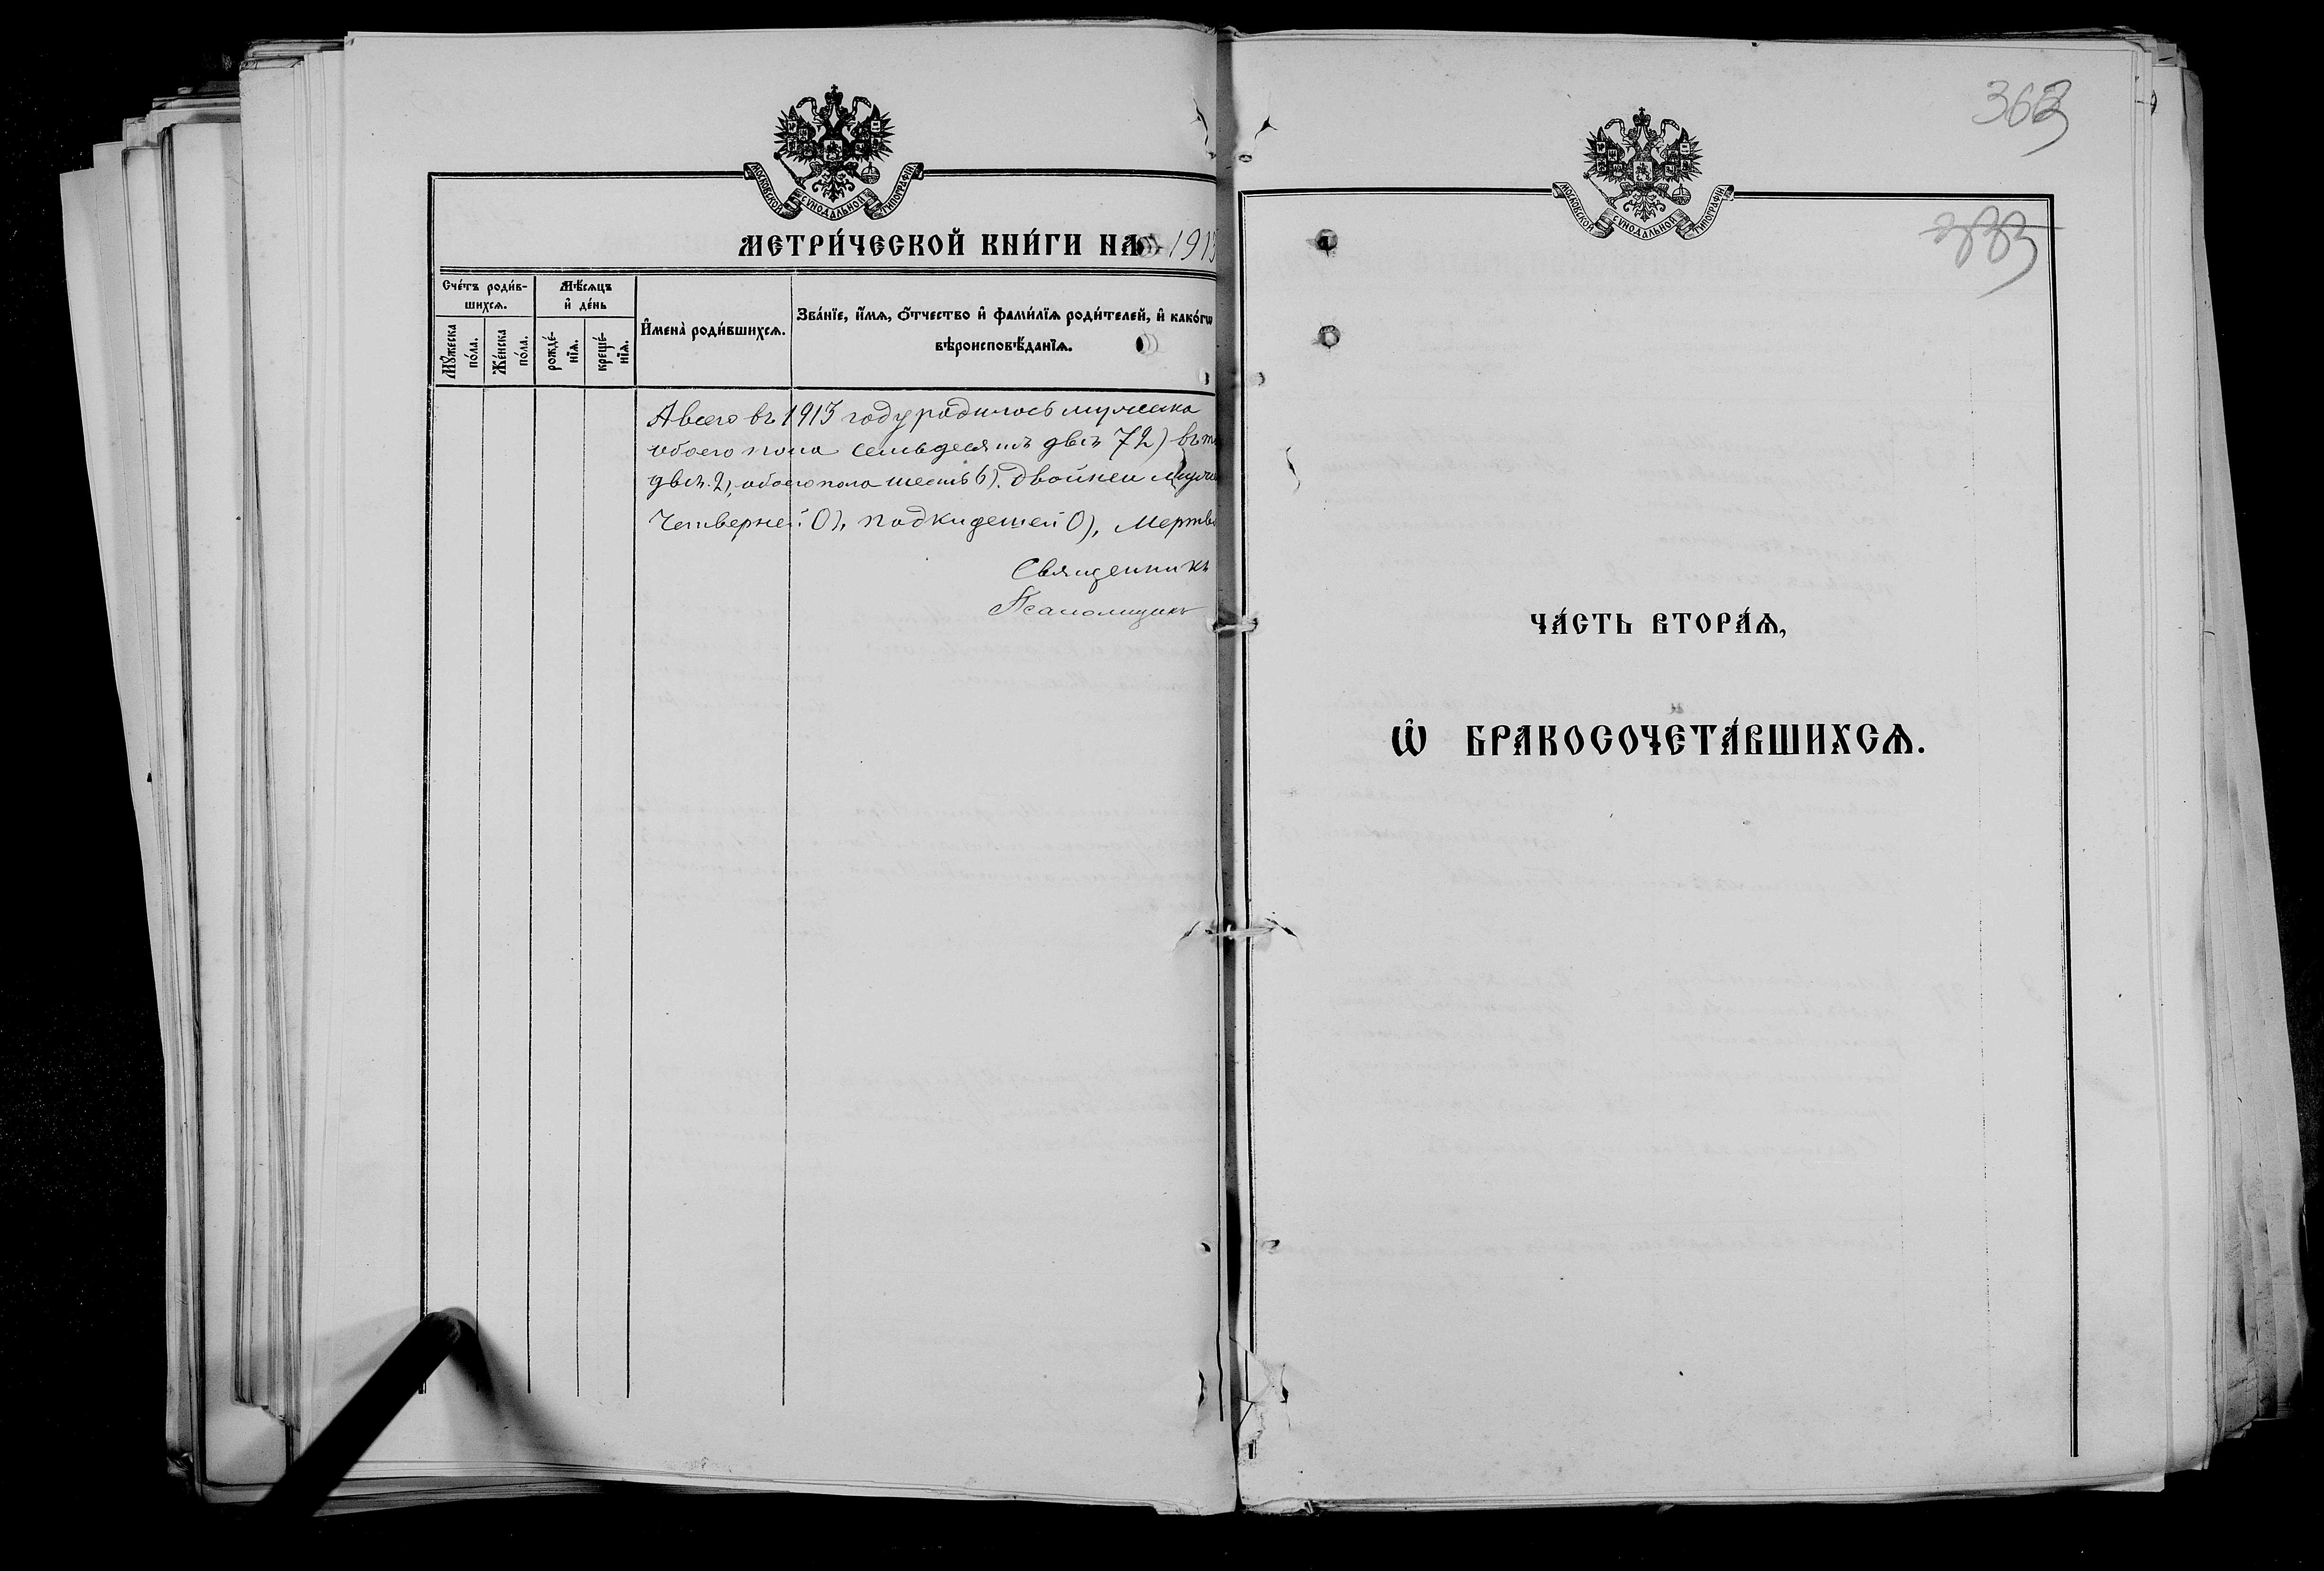 МОСКОВСКОЙ СѴНОДАЛЬНОЙ ТИПОГРАФІИ
МЕТРИ́ЧЕСКОЙ КНИ́ГИ НА 1913
Сче́тъ роди́в-
шихсѧ.
Мѣ́сѧцъ
и҆ де́нь
И҆мена̀ роди́вшихсѧ.
Зва́нїе, и҆́мѧ, ѻ҆́тчество и҆ фами́лїѧ роди́телей, и҆ како́гѡ
вѣроисповѣ́данїѧ.
Мꙋ́жеска
по́ла.
Же́нска
по́ла.
рожде́-
нїѧ.
креще́-
нїѧ.
А всего въ 1913 году родилось мужеска
обоего пола семьдесятъ двѣ 72) въ
двѣ 2), обоего пола шесть 6). Двойней
Четверней 0), подкидышей 0),
Священникъ
Псаломщикъ
363
МОСКОВСКОЙ СѴНОДАЛЬНОЙ ТИПОГРАФІИ
ЧА́СТЬ ВТОРА́Ѧ,
Ѡ҆ БРАКОСОЧЕТА́ВШИХСѦ.